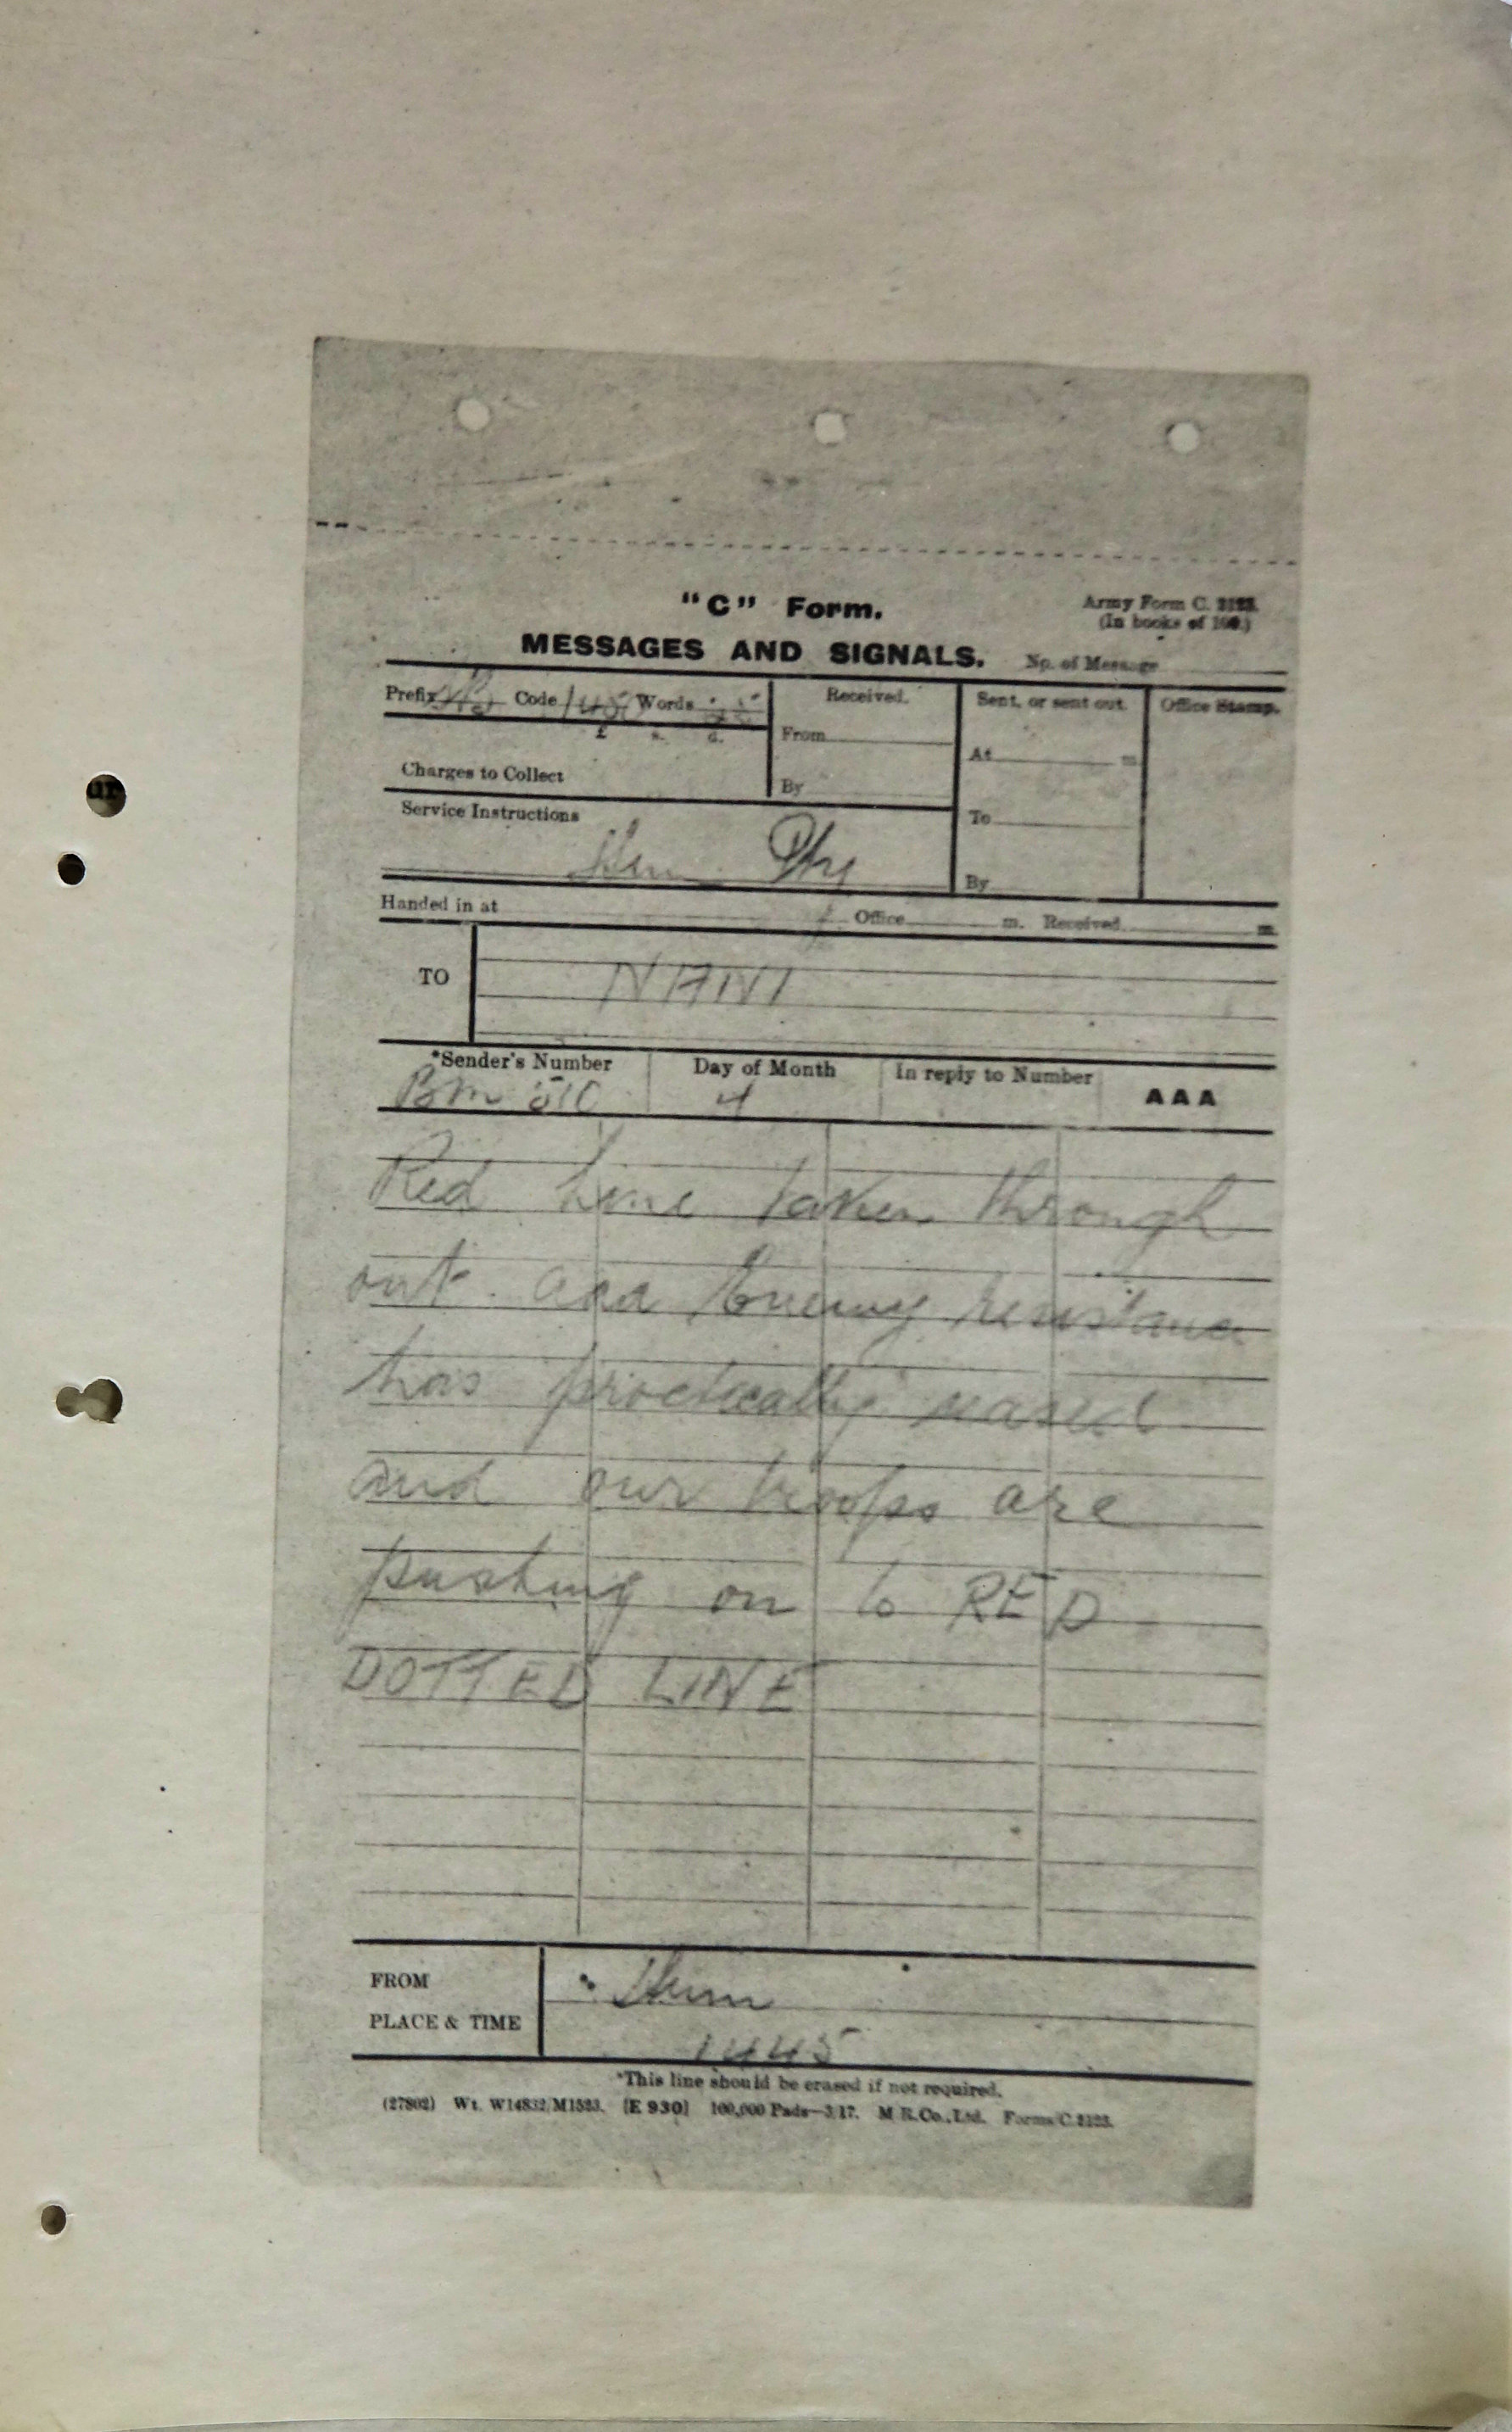 "C" Form.
Army Form C. 2123.
(In books of 100.)
MESSAGES AND SIGNALS.
No. of Message
Prefix Code Words
Received.
Sent, or sent out.
Office Stamp.
£ s. d.
From
At m
Charges to Collect
By
Service Instructions
To
By
Handed in at Office m. Received m.
TO NANI
*Sender's Number
Day of Month
In reply to Number
AAA
BM 510
4
Red Line taken through
out. aaa Enemy resistance
has practically ceased
and our troops are
pushing on to RED
DOTTED LINE
FROM
PLACE & TIME
1445
*This line should be erased if not required.
(27802) Wt. W14832/M1523. [E 930] 100,000 Pads—3/17. M.R.Co.,Ltd. Forms/C.2123.